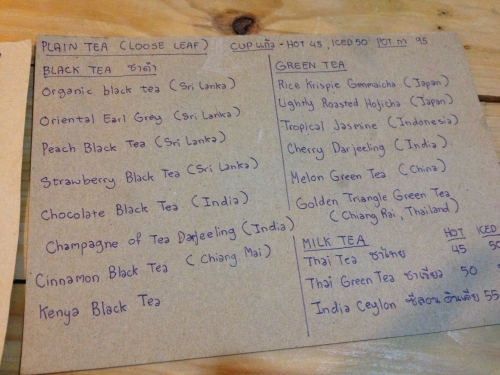 PLAIN TEA (LOOSE LEAF) CUP แก้ว - HOT 45, ICED 50 POT กา 95
BLACK TEA ชาดำ
Organic black tea (Sri Lanka)
Oriental Earl Grey (Sri Lanka)
Peach Black Tea (Sri Lanka)
Strawberry Black Tea (Sri Lanka)
Chocolate Black Tea (India)
Champagne of Tea Darjeeling (India)
Cinnamon Black Tea (Chiang Mai)
Kenya Black Tea
GREEN TEA
Rice Krispie Genmaicha (Japan)
Lightly Roasted Hojicha (Japan)
Tropical Jasmine (Indonesia)
Cherry Darjeeling (India)
Melon Green Tea (China)
Golden Triangle Green Tea
(Chiang Rai, Thailand)
MILK TEA HOT ICED
Thai Tea ชาไทย 45 50
Thai Green Tea ชาเขียว 50
India Ceylon ซีลอน อินเดีย 55